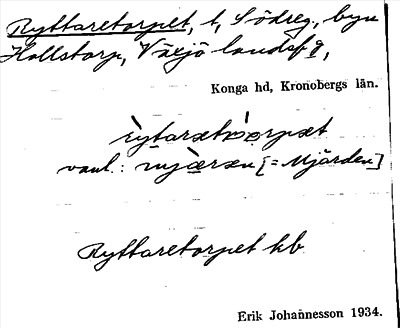 Ryttaretorpet, t, Södreg, byn
Hallstorp, Växjö landsfg,
Konga hd, Kronobergs län.
rytaretorpæt
vanl.: mjæren [= Mjärden]
Ryttaretorpet kb
Erik Johannesson 1934.